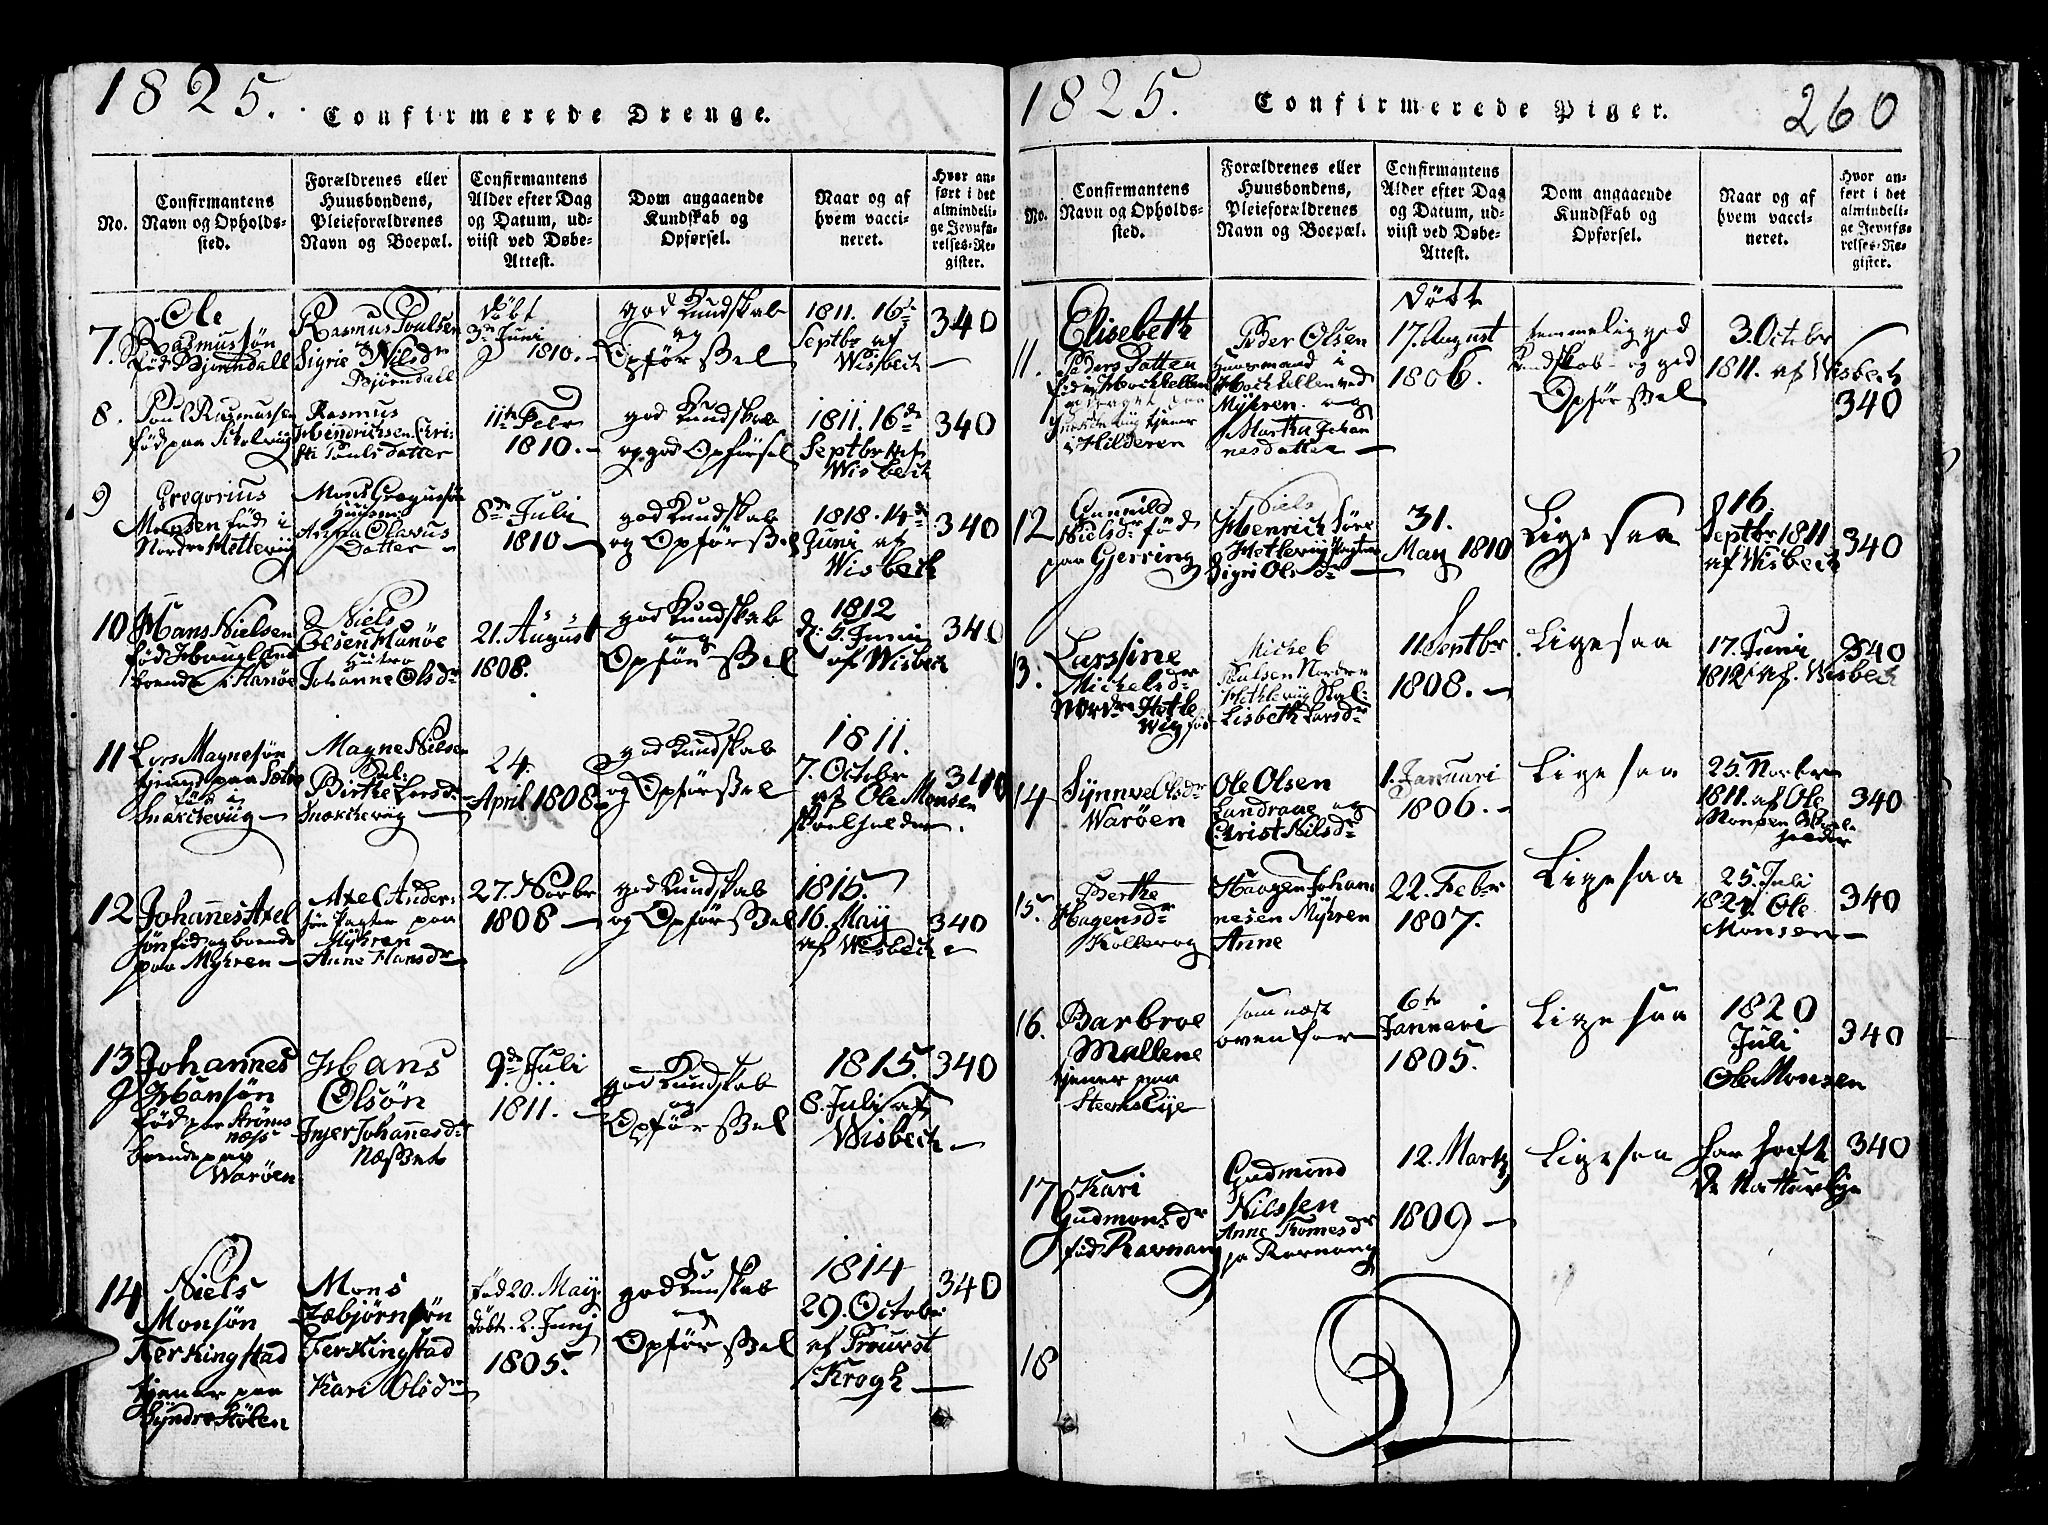 1825.
Confirmerede Drenge.
No.
Confirmantens
Navn og Opholds-
sted.
Forældrenes eller
Huusbondens,
Pleieforældrenes
Navn og Boepæl.
Confirmantens
Alder efter Dag
og Datum, ud-
viist ved Døbe-
Attest.
Dom angaaende
Kundskab og
Opførsel.
Naar og af
hvem vacci-
neret.
Hvor an-
ført i det
almindeli-
ge Jevnfø-
relses-Re-
gister.
7.
Ole
Rasmussøn
fød Bjørndall
Rasmus Poulsen
og
Sigrie Nilsdr
Bjørndall
døbt
3de Juni
1810.
god Kundskab
og
Opførssel
1811. 16de
Septbr af
Wisbech
340
8.
Poul Rasmussen
fød paa Skelvig
Rasmus
Hendrichsen Cri-
sti Pouls datter
11te Febr
1810.
god Kundskab
og god Opførsel
1811. 16de
Septbr af
Wisbech
340
9
Gregorius
Monsen fød i
Nordre Hettevig
Mons Gregusøn
Huusm
Anna Olavus
Datter
8de Juli
1810
god Kundskab
og Opførssel
1818. 14de
Juni af
Wisbech
340
10
Hans Nielsen
fød Haugland
boende i Hanøe
Niels
Olsen Hanøe
Hustro
Johanne Olsdr
21. August
1808.
god Kundskab
og
Opførssel
1812
d: 5. Juni
af Wisbech
340
11
Lars Magnesøn
tjened paa
fød i
Snækkevug
Magne Nilsen
Sal:
Birthe Larsdr
Snækkevug
24.
April 1808
god Kundskab
og Opførssel
1811.
7. Octobr
af Ole Monsen
Skoelholder.
340
12
Johannes Axel
søn fød og boende
paa Myhren
Axel Ander-
søn Pagter paa
Myhren
Anne Hansdr
27. Novbr
1808
god Kundskab
og Opførssel
1815.
16. May
af Wisbech
340
13
Johannes
Hansøn
fød paa Strøms
næss
boende paa
Warøen
Hans
Olsøn
Injer Johannesdr
Næsset
9de Juli
1811.
god Kundskab
og
Opførssel
1815.
8. Juli af
Wisbech
340
14
Niels
Monsøn
Ferkingstad
tjener paa
Syndre Stølen
Mons
Æsbjørnsøn
Ferkingstad
Kari Olsdr
fød 20. May
døbt. 2. Junj
1805.
god Kundskab
og
Opførssel
1814
29. October
af Prowst
Krogh
340
1825.
Confirmerede Piger.
260
No.
Confirmantens
Navn og Opholds-
sted.
Forældrenes eller
Huusbondens,
Pleieforældrenes
Navn og Boepæl.
Confirmantens
Alder efter Dag
og Datum, ud-
viist ved Døbe-
Attest.
Dom angaaende
Kundskab og
Opførsel.
Naar og af
hvem vacci-
neret.
Hvor an-
ført i det
almindeli-
ge Jevnfø-
relses-Re-
gister.
11.
Elisebeth
Peders Datter
tjener
i Hilderen
Peder Olsen
Huusmand i
ved
Myhren og
Martha Johan
nesdatter
Døbt
17. August
1806.
temmelig god
Kundskab og god
Opførssel
3. Octobr
1811. af Wisbech
340
12
Gunnild
Nielsdr fød
paa Gjerring
Niels
Henrich Søre
Hetlevig Pagter
Sigri Olsdr
31.
May 1810
Ligesaa
16.
Septbr 1811
af Wisbech
340
13.
Larssine
Michelsdr
Nordre Hetle
wig fød
Michel
Paulsen Nordre
Hetlevig Skal-
Lisbeth Larsdr
11 Septbr
1808.
Ligesaa
17. Juni
1812 af. Wisbech
340
14
Synnve Olsdr
Warøen
Ole Olsen
Landraae og
Christ Nilsdr
1. Januari
1806.
Ligesaa
25. Novbr
1811. af Ole
Monsen Skoel-
holder
340
15.
Berthe
Hagensdr
Kollevog
Haagen Johan
nesen Myhren
Anne
22. Febr
1807.
Ligesaa
25. Juli
1821. Ole
Monsen
340
16.
Barbroe
Mallene
tjener paa
Steensøye
som næst
ovenfor
6te
Januari
1805.
Ligesaa
1820
Juli
Ole Monsen
340
17
Kari
Gudmonsdr
fød Ravnan
Gudmind
Nilssen
Anne Thomesdr
pa Ravnang
12. Martz
1809
Ligesaa
har haft
de Natturlige
340
18